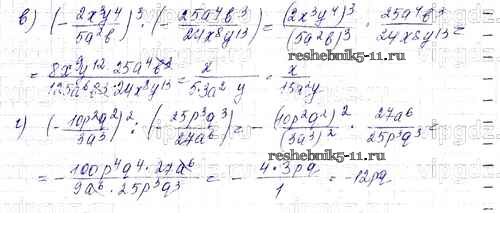 в) (- 2x³y⁴/5a²в)³ : (- 25a⁴в³/24x⁸y¹³) = (2x³y⁴)³/(5a²в)³ · 25a⁴в³/24x⁸y¹³ =
= 8x⁹y¹² · 25a⁴в³/125a⁶в³ · 24x⁸y¹³ = x/5·3a² y = x/15a²y
г) (- 10p²q²/3a³)² : (- 25p³q³/27a⁶) = - (10p²q²)²/(3a³)² · 27a⁶/25p³q³ =
reshebnik5-11.ru
= - 100p⁴q⁴ · 27a⁶/9a⁶ · 25p³q³ = - 4·3pq/1 = -12pq
reshebnik5-11.ru